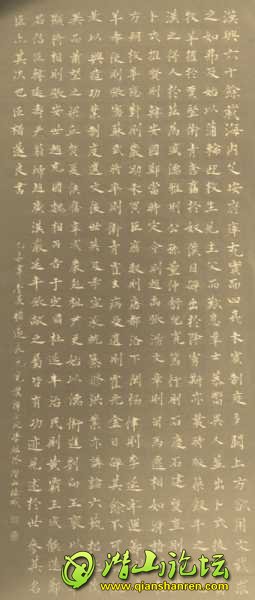 漢興六十餘載海內艾安府庫充實而四夷未賓制度多闕上方欲用文武求
之如弗及始以蒲輪迎枚生見主父而歎息羣士慕嚮異人並出卜式拔於芻
牧羊擢於賈豎衛青奮於奴僕日磾出於降虜斯亦曩時版築飯牛之朋已
漢之得人於茲為盛儒雅則公孫董仲舒兒寬篤行則石建石慶質直則汲黯
卜式推賢則韓安國鄭當時定令則趙禹張湯文章則司馬遷相如滑稽則東
方朔枚皋應對則嚴助朱買臣歷數則唐都洛下閎協律則李延年運籌則桑
羊奉使則張騫蘇武將率則衛青霍去病受遺則霍光金日磾其餘不可勝紀
是以興造功業制度遺文後世莫及孝宣承統纂脩洪業亦講論六藝招選茂
異而蕭望之梁丘賀夏侯勝韋玄成嚴彭祖尹更始以儒術進劉向王褒以文章
顯將相則張安世趙充國魏相丙吉于定國杜延年治民則黃霸王成龔遂鄭
召信臣韓延壽尹翁歸趙廣漢嚴延年張敞之屬皆有功迹見述於世參其名
臣亦其次也臣褚遂良書
潜山论坛
www.qianshanren.com